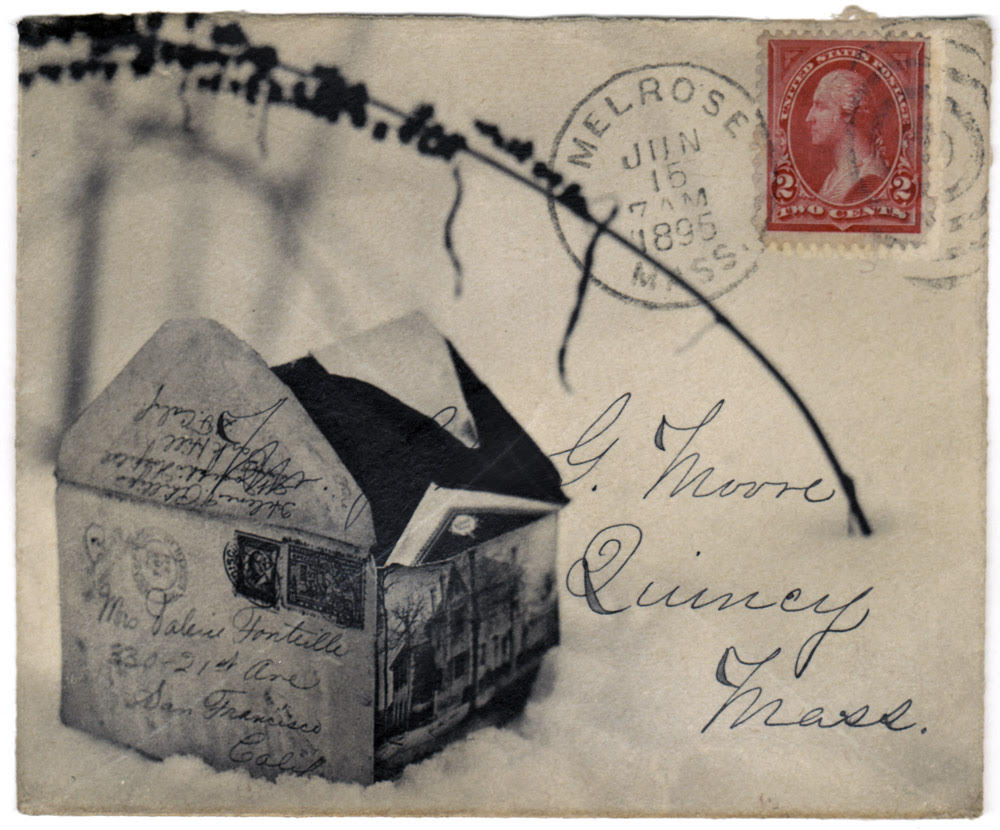 MELROSE
JUN
15
7 AM
1895
MASS.
UNITED STATES POSTAGE
2 2
TWO CENTS
G. Moore
Quincy
Mass.
Park Hill
S. F. Calif
Mrs Valerie Fonteille
330-21st Ave
San Francisco
Calif